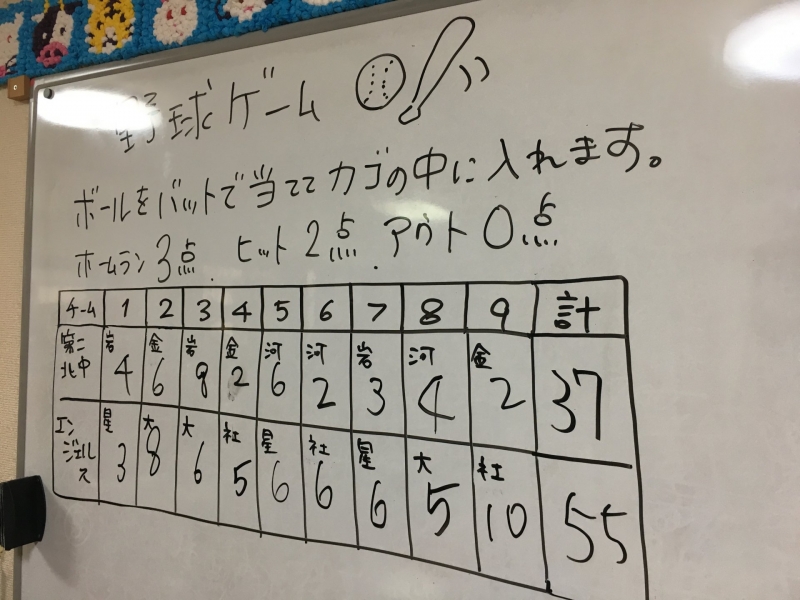 野球ゲーム
ボールをバットで当ててカゴの中に入れます。
ホームラン3点. ヒット2点. アウト0点
チーム 1 2 3 4 5 6 7 8 9 計
第二北中 岩4 金6 岩8 金2 河6 河2 岩3 河4 金2 37
エンジェルス 星3 大8 大6 社5 星6 社6 星6 大5 社10 55